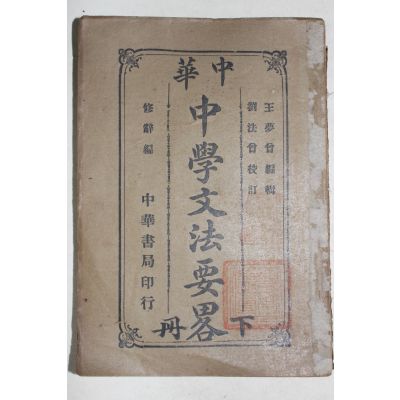 中華
王夢曾編輯
劉法曾校訂
中學文法要畧
下冊
修辭編
中華書局印行